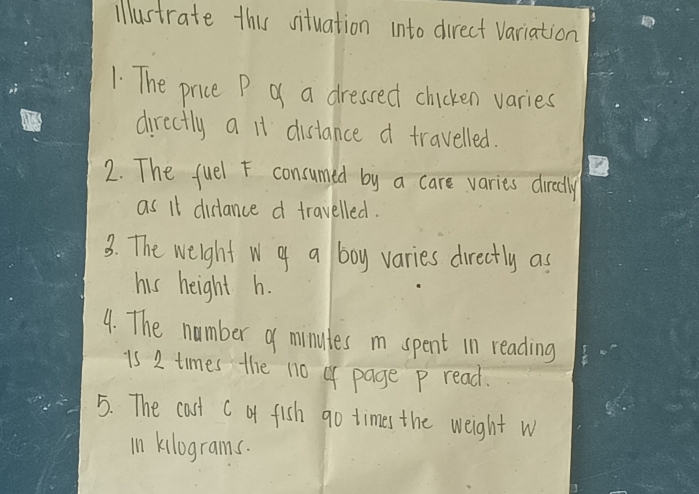 illustrate this situation into direct variation
1. The price P of a dressed chicken varies
directly a it distance d travelled.
2. The fuel F consumed by a care varies directly
as it distance d travelled.
3. The weight w of a boy varies directly as
his height h.
4. The number of minutes m spent in reading
is 2 times the no of page p read.
5. The cost C of fish 90 times the weight w
in kilograms.